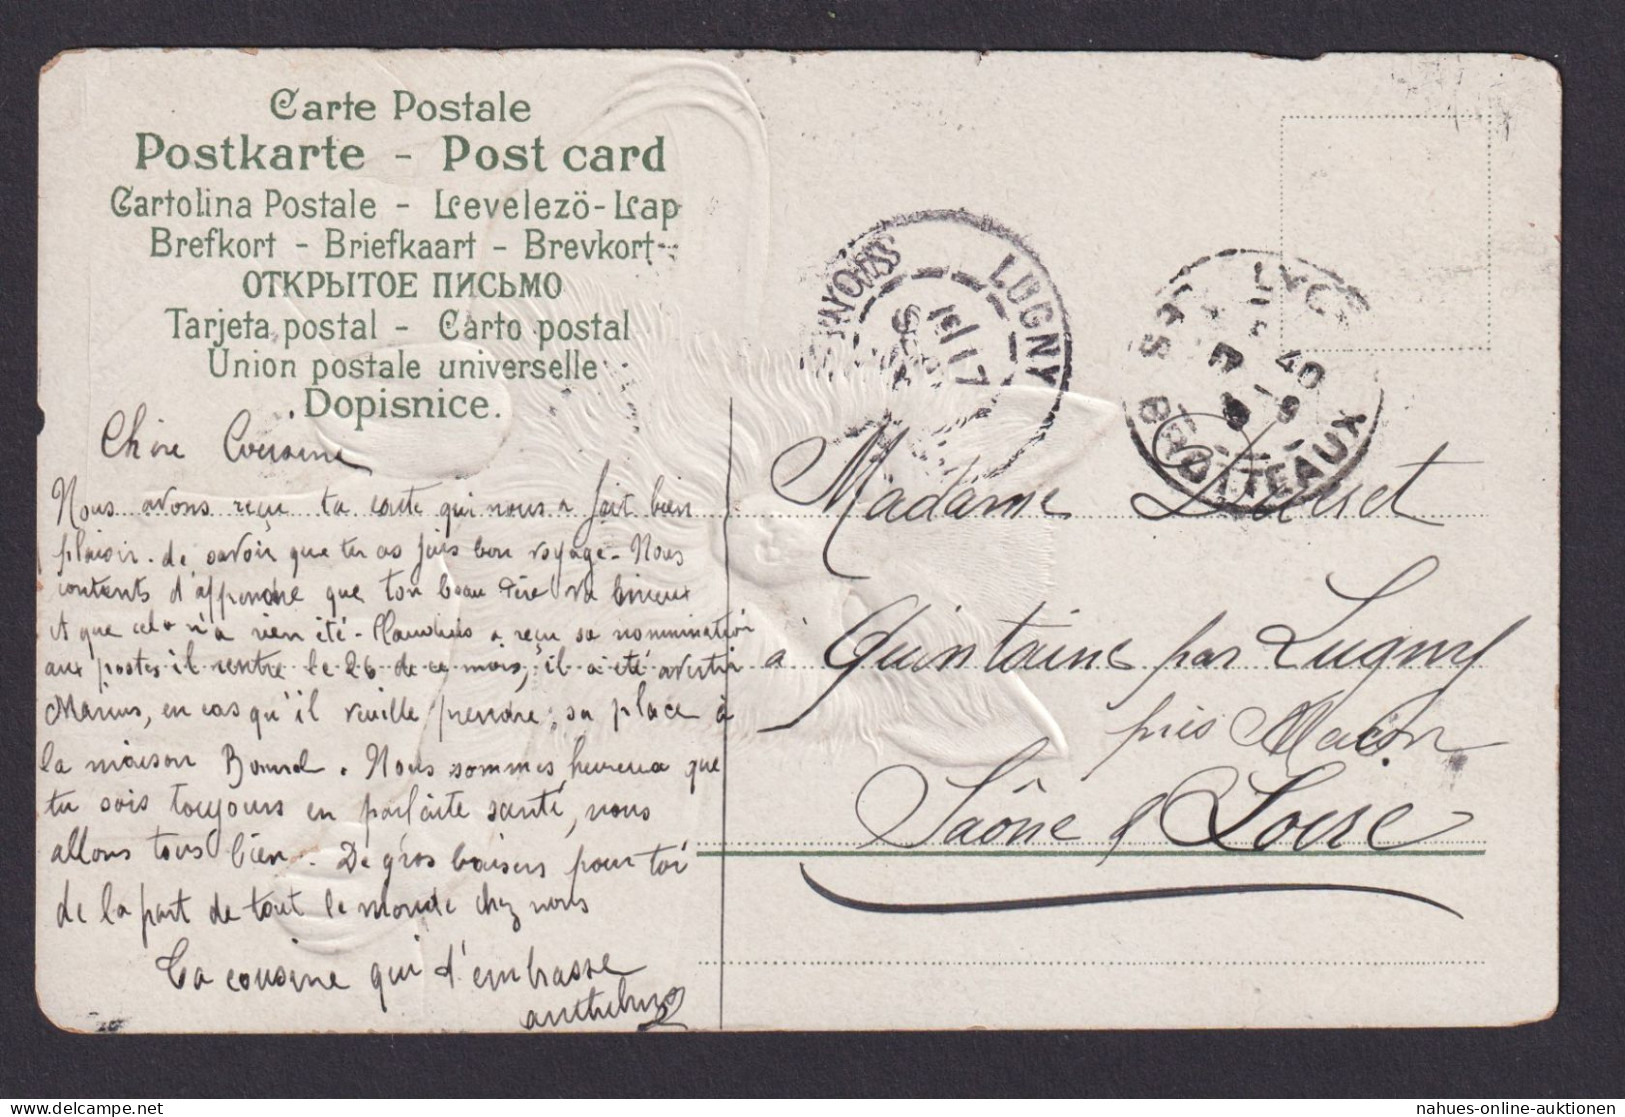 Carte Postale
Postkarte - Post card
Cartolina Postale - Levelezö-Lap
Brefkort - Briefkaart - Brevkort
ОТКРЫТОЕ ПИСЬМО
Tarjeta postal - Carto postal
Union postale universelle
Dopisnice.
Chère Cousine
Nous avons reçu ta carte qui nous a fait bien
plaisir de savoir que tu as fais bon voyage - Nous
contents d'apprendre que ton beau Père va
et que cela n'a rien été - a reçu sa nommination
aux postes il rentre le 26 de ce mois, il a été avertir
Marius, en cas qu'il veuille prendre sa place à
la maison . Nous sommes heureux que
tu sois toujours en parfaite santé, nous
allons tous bien. De gros baisers pour toi
de la part de tout le monde chez nous
Ta cousine qui t'embrasse
LUGNY
17
BROTTEAUX
40
Madame
à Quintaine par Lugny
près Macon
Saône & Loire
nahues-online-auktionen